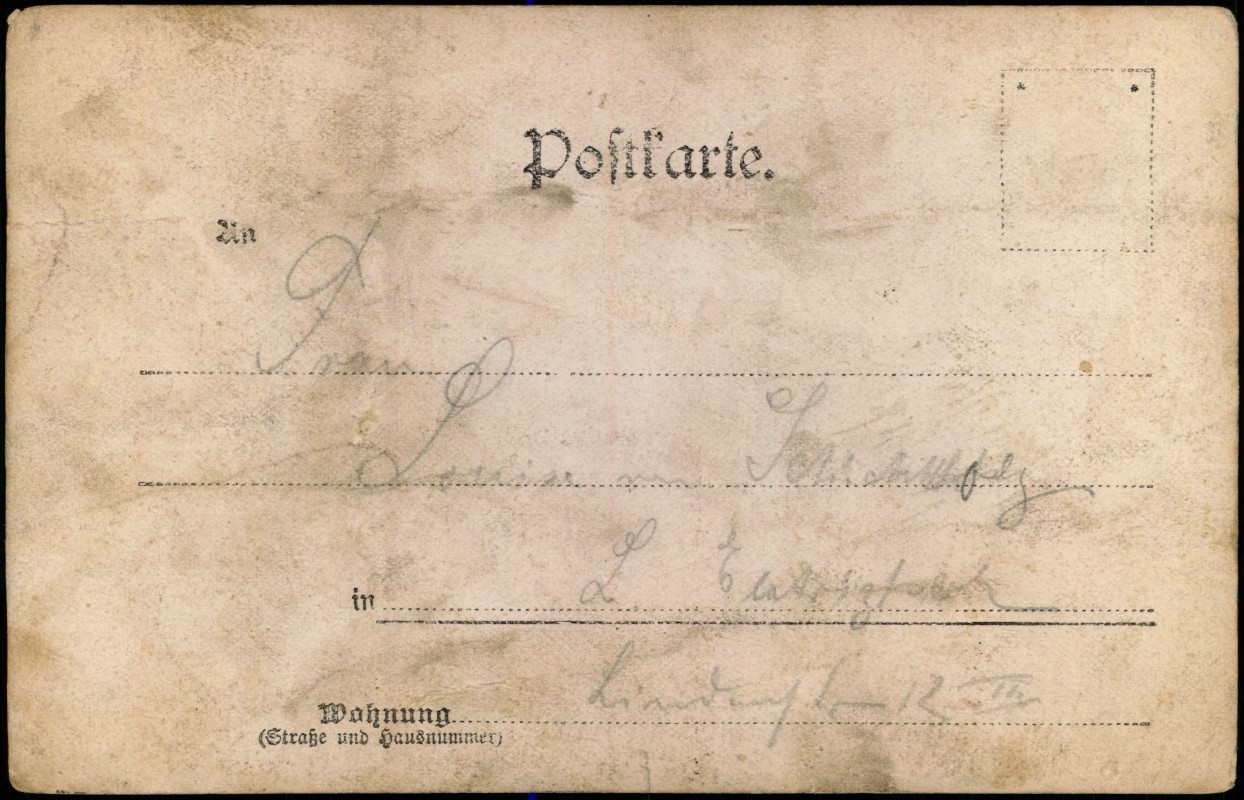 Postkarte.
An
Frau
Louise von
in L.
Wohnung Lindenstr 12 III
(Straße und Hausnummer)